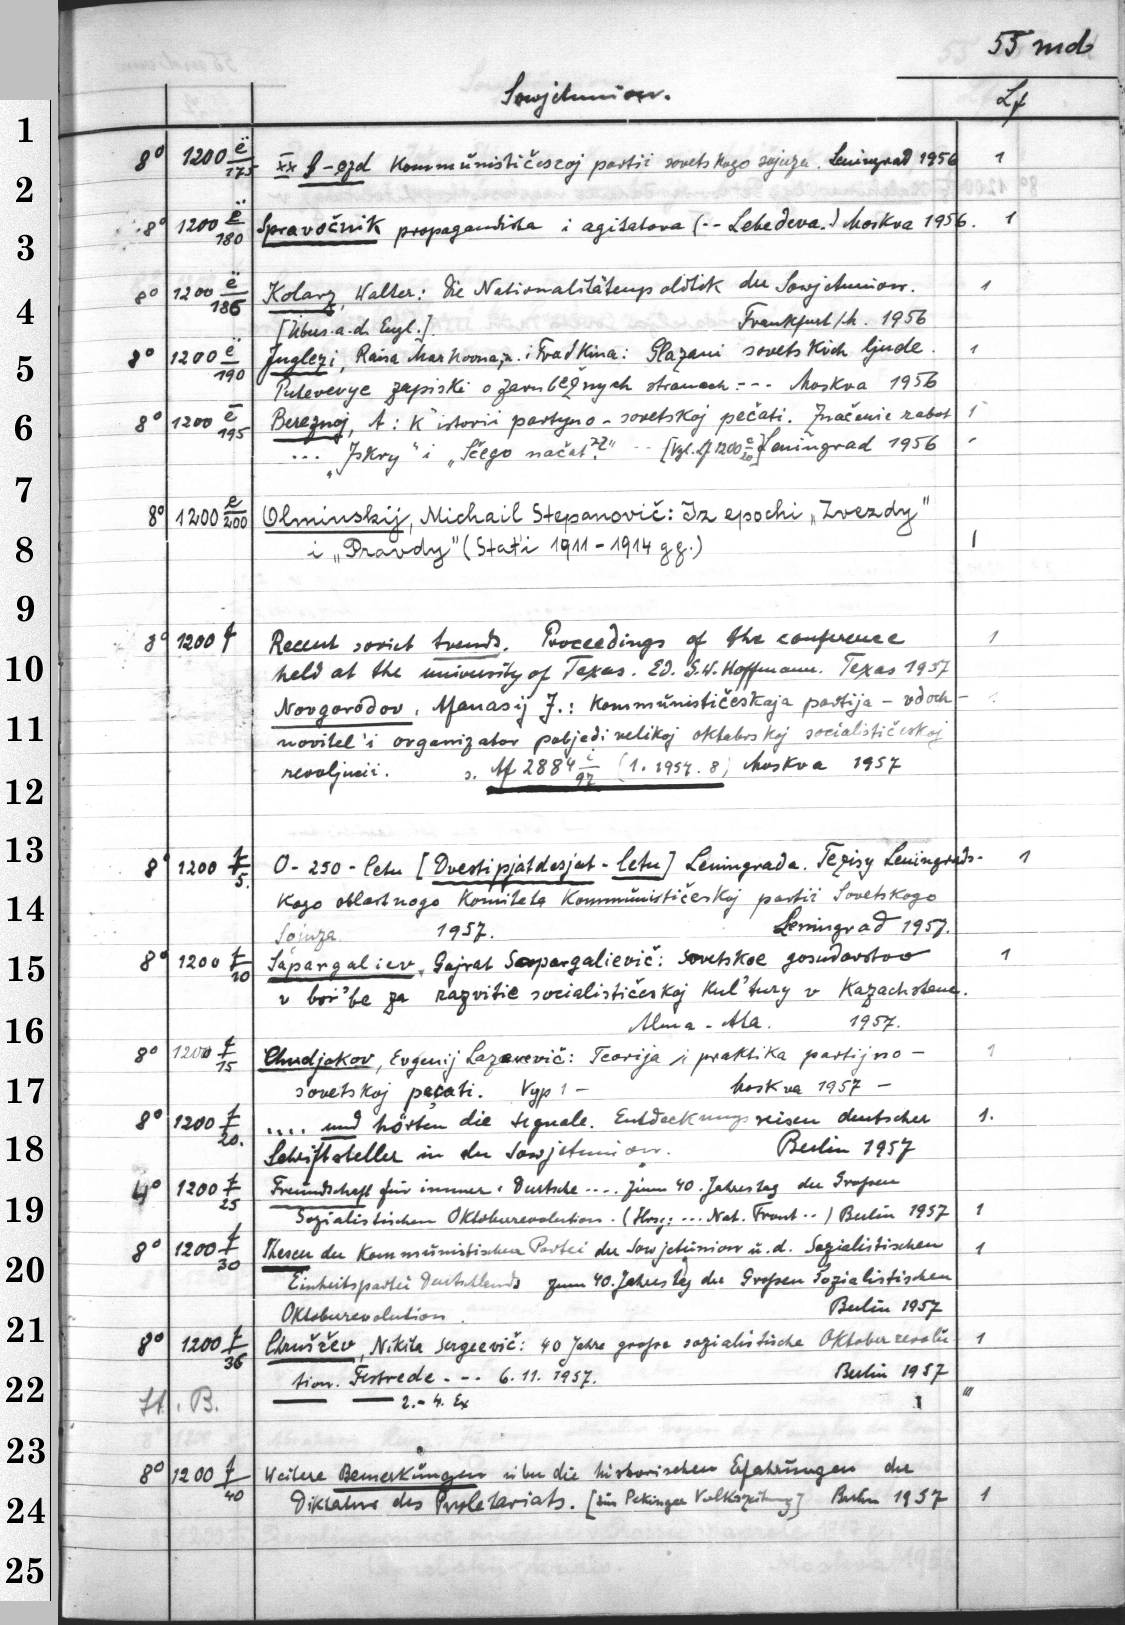 55 mdb
Sowjetunion. Lf
1
8° 1200 ë/175 XX S-ezd Kommunističeskoj partii sovetskogo sojuza. Leningrad 1956 1
2
8° 1200 ë/180 Spravočnik propagandista i agitatora (-- Lebedeva.) Moskva 1956. 1
3
8° 1200 ë/186 Kolarz, Walter: Die Nationalitätenpolitik der Sowjetunion. 1
4
[Übers. a. d. Engl.] Frankfurt/M. 1956
8° 1200 ë/190 Raisa i Fradkina: Glazami sovetskich ljude. 1
5
Putevye zapiski o zarubežnych stranach --- Moskva 1956
8° 1200 ë/195 Bereznoj, A: K istorii partijno-sovetskoj pečati. Značenie rabot 1
6
... "Iskry" i "Sčego načat'?" -- [Vgl. Af 1200 e/20] Leningrad 1956
7
8° 1200 e/200 Olminskij, Michail Stepanovič: Iz epochi „Zvezdy"
8
i „Pravdy" (Stat'i 1911-1914 gg.) 1
9
8° 1200 f Recent soviet trends. Proceedings of the conference 1
10
held at the university of Texas. Ed. G.W. Hoffmann. Texas 1957
Novgorodov, Afanasij J.: Kommunističeskaja partija - vdoch-
11
novitel' i organizator pobjedi velikoj oktobrskoj socialističeskoj
revoljucii. s. Af 2884 i/97 (1. 1957. 8) Moskva 1957
12
13
8° 1200 f/5. O-250-letu [Dvestipjatdesjat-letu] Leningrada. Tezisy Leningrads- 1
14
kogo oblastnogo Komiteta Kommunističeskoj partii Sovetskogo
Sojuza. 1957. Leningrad 1957.
15
8° 1200 f/10 Sapargaliev, Gajrat Sapargalievič: Sovetskoe gosudarstvo 1
v bor'be za razvitie socialističeskoj kul'tury v Kazachstane.
16
Alma-Ata. 1957.
8° 1200 f/15 Chudjakov, Evgenij Lazarevič: Teorija i praktika partijno- 1
17
sovetskoj pečati. Vyp 1 - Moskva 1957 -
8° 1200 f/20. .... und hörten die Signale. Entdeckungsreisen deutscher 1.
18
Schriftsteller in der Sowjetunion. Berlin 1957
4° 1200 f/25 Freundschaft für immer. Deutsche .... zum 40. Jahrestag der Großen
19
Sozialistischen Oktoberrevolution. (Hrsg: ... Nat. Front ..) Berlin 1957 1
8° 1200 f/30 Thesen der Kommunistischen Partei der Sowjetunion u. d. Sozialistischen 1
20
Einheitspartei Deutschlands zum 40. Jahrestag der Großen Sozialistischen
Oktoberrevolution. Berlin 1957
21
8° 1200 f/36 Chruščev, Nikita Sergeevič: 40 Jahre große sozialistische Oktoberrevolu- 1
tion. Festrede --- 6.11.1957. Berlin 1957
22
St. B. — — 2.-4. Ex 1 "
23
8° 1200 f/40 Weitere Bemerkungen über die historischen Erfahrungen der
24
Diktatur des Proletariats. [Aus Pekinger Volkszeitung] Berlin 1957 1
25